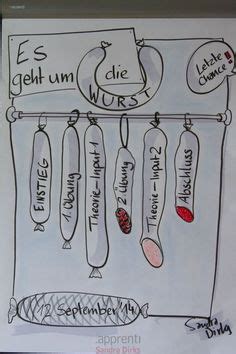 Es
geht um
die
WURST
Letzte
Chance!
EINSTIEG
1. Übung
Theorie-Input 1
2. Übung
Theorie-Input 2
Abschluss
12. September '14
Sandra
Dirks
.apprenti
Sandra Dirks